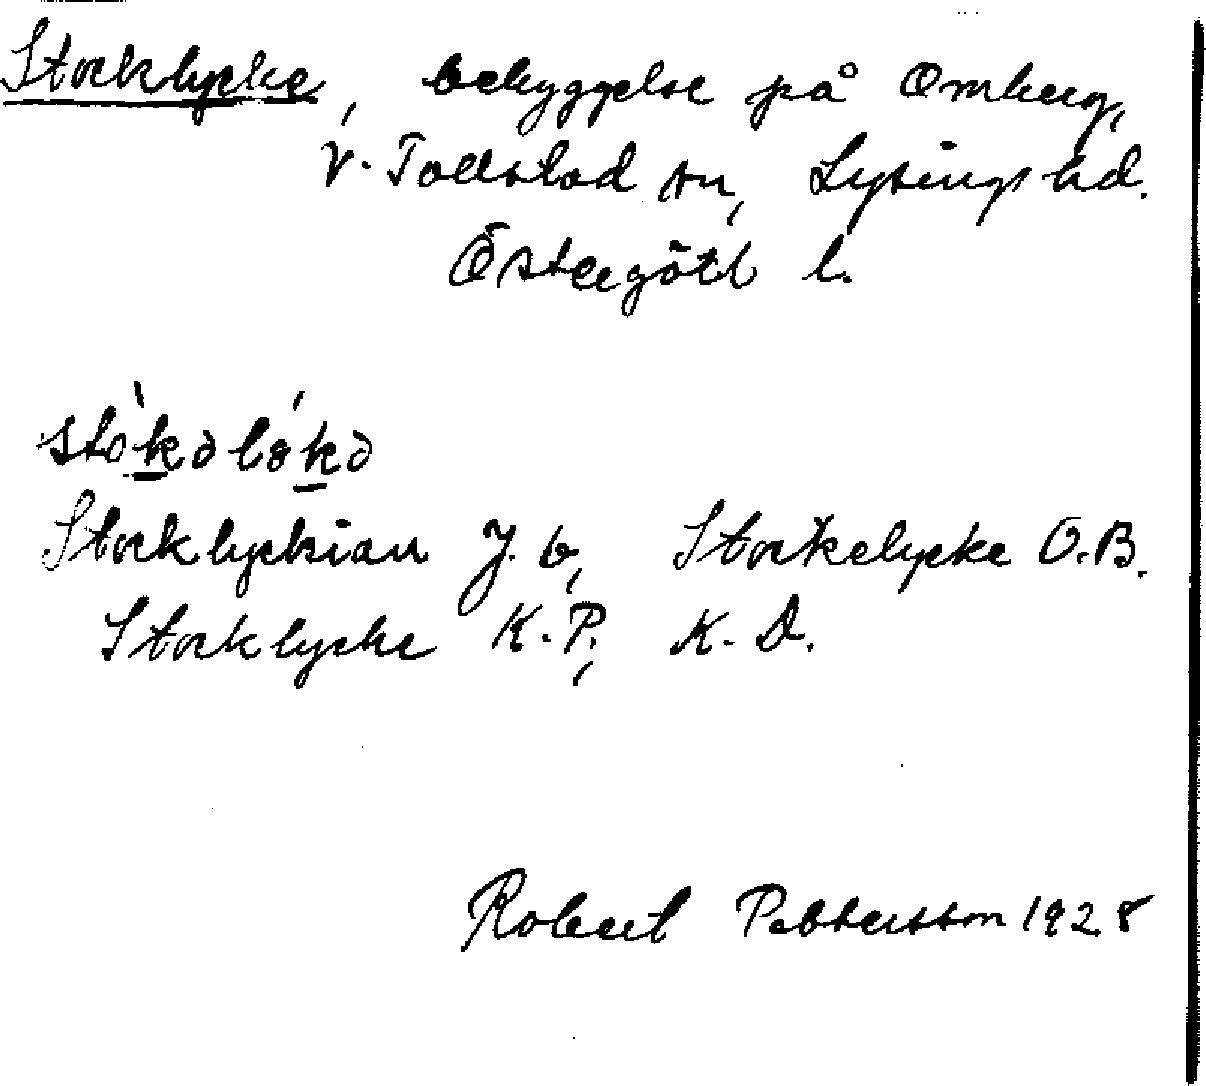 Stocklycke, bebyggelse på Omberg,
V. Tollstad sn, Lysings hd.
Östergötl l.
stòkəlökə
Stocklyckian J.b, Stockelycke O.B.
Stocklycke K.P., K.D.
Robert Pettersson 1928